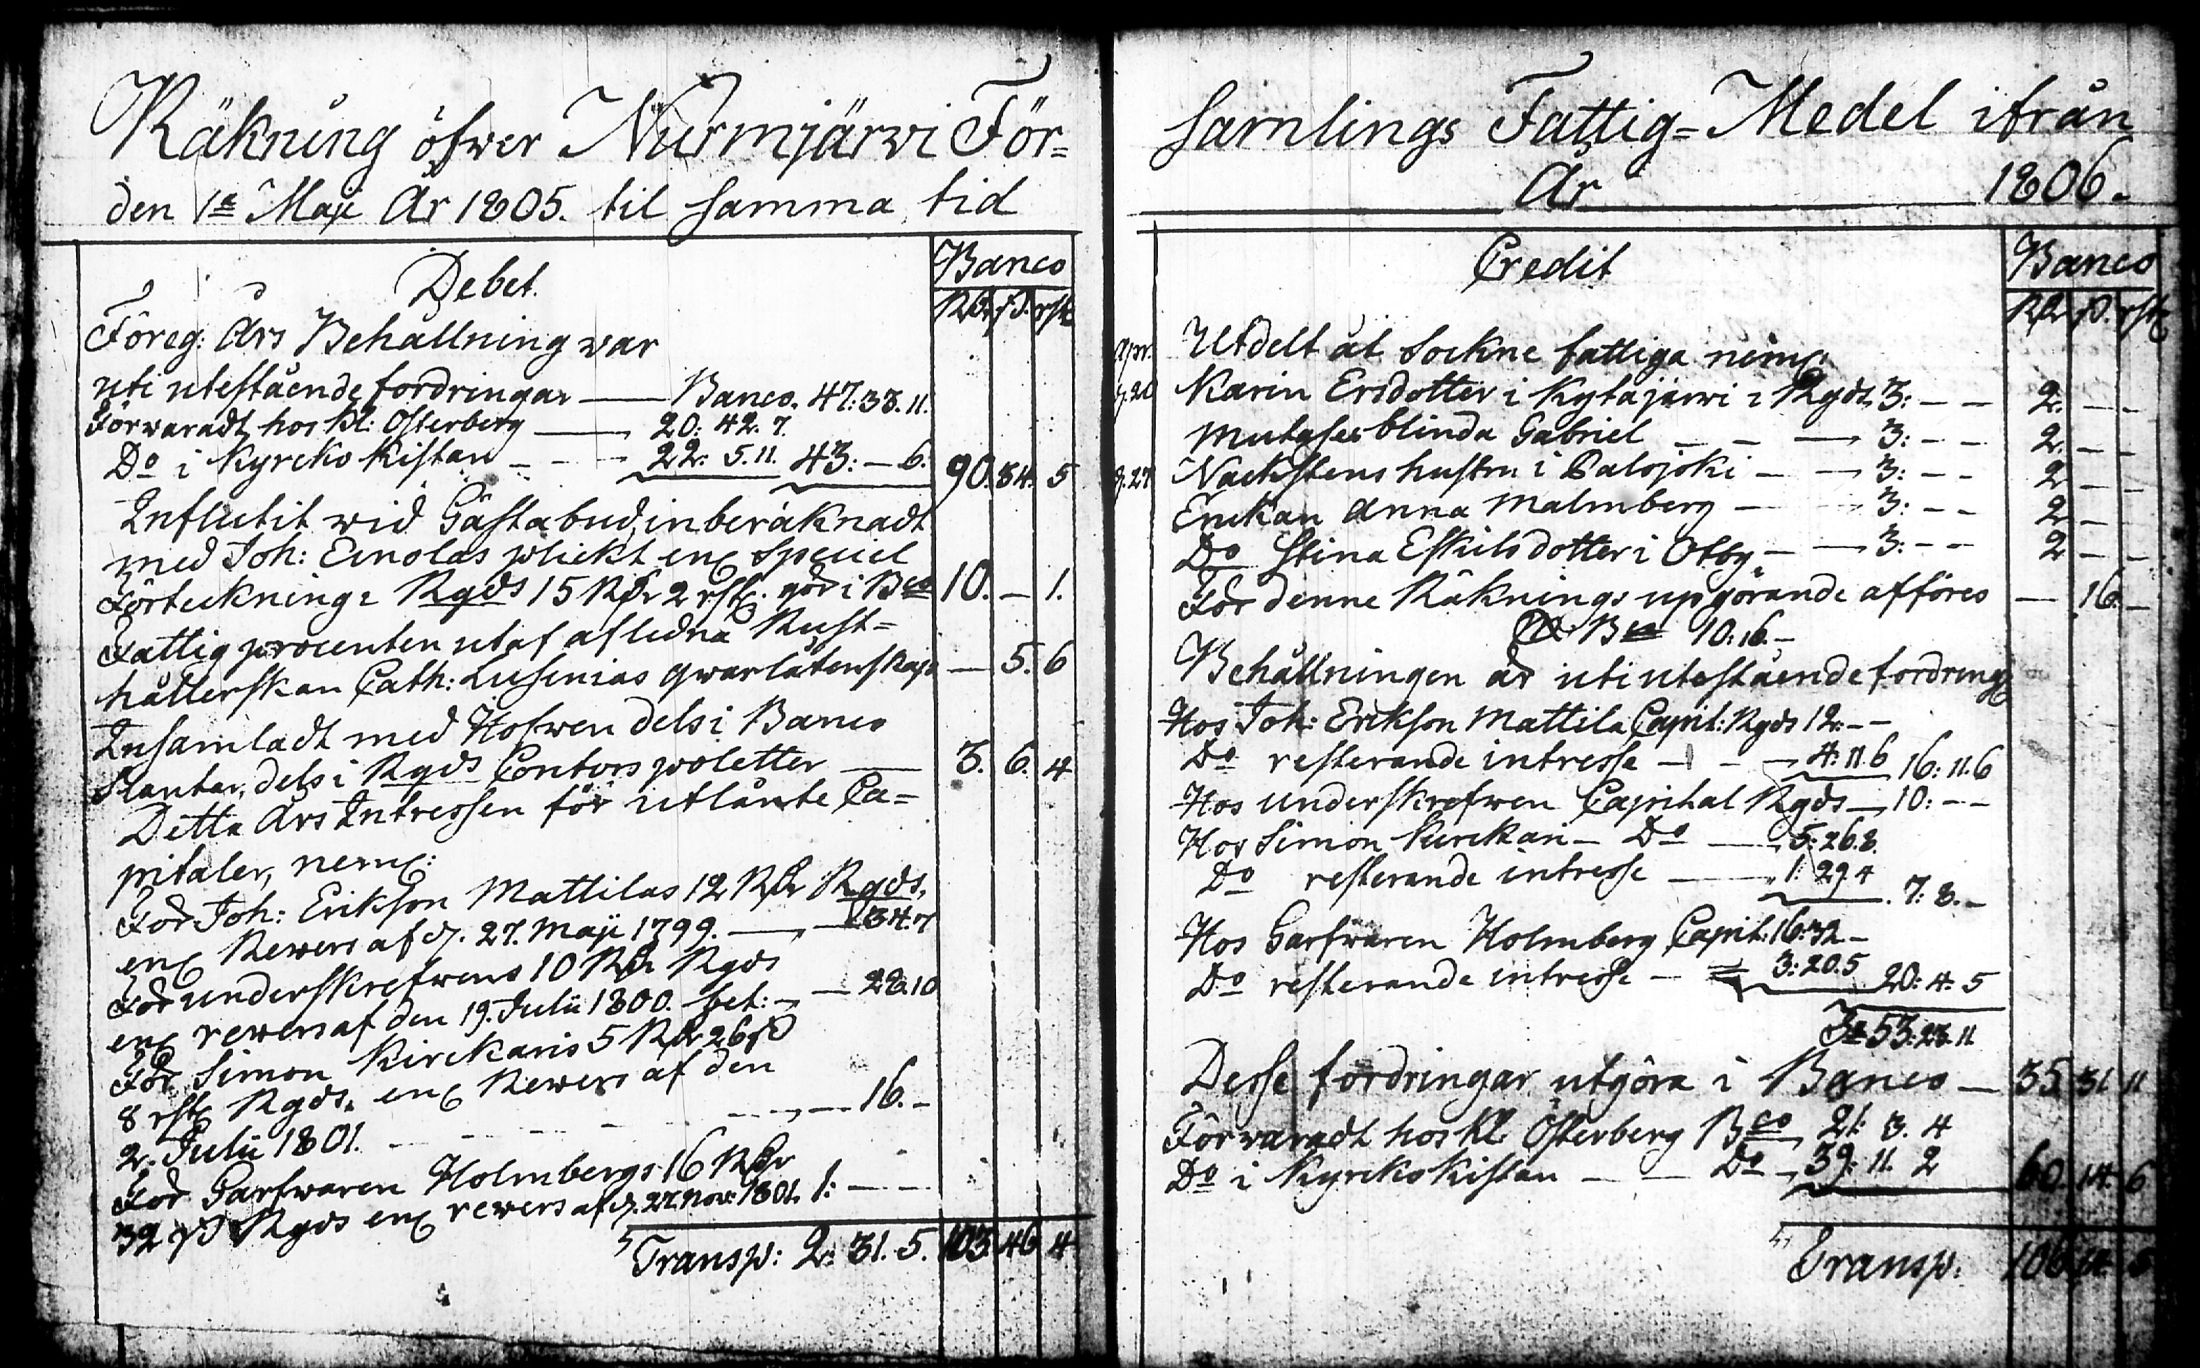 Räkning öfwer Nurmjärwi För=
den 1e Maji År 1805. til samma tid
Debet.
Banco
Rdr ß. rst
Föreg: Års Behållning war
uti utestående fordringar — Banco. 47: 33. 11.
Förwaradt hos Kl: Österberg — 20: 42. 7.
Do i Kyrcko Kistan — 22: 5. 11. 43: — 6. 90. 34. 5
Influtit wid Gästabud, inberäknadt
med Joh: Einolas plickt enl Speciel
Förteckning: Rgds 15 Rdr 2 rst. gör i Bco 10. — 1.
Fattig procenten utaf aflidna Rust=
hållerskan Cath: Lusenias qwarlåtenskap — 5. 6
Insamladt med Hofwen dels i Banco
Slantar, dels i Rgds Contors poletter — 3. 6. 4
Detta Års Intressen för utlånte Ca=
pitaler, neml:
För Joh: Erikson Mattilas 12 Rdr Rgds,
enl Rewers af d. 27. Maji 1799. — 34. 7
För underskrefwens 10 Rdr Rgds
enl rewers af den 19. Julii 1800. bet: — 28. 10
För Simon Kirckaris 5 Rdr 26 ß
8 rst Rgds. enl Rewers af den
2. Julii 1801. — 16. —
För Garfwaren Holmbergs 16 Rdr
32 ß Rgds enl rewers af d. 27. Nov: 1801. 1: — —
Transp: 2: 31. 5. 103. 46. 4
samlings Fattig=Medel ifrån
År 1806.
Credit
Banco
Rdr ß. rst
Apr. Utdelt åt Sockne fattiga neml:
d. 20 Karin Ersdotter i Kytäjärwi i Rgds 3: — — 2. — —
blinda Gabriel — — 3: — — 2. — —
d. 27. Nackstens hustru i Palojoki — — 3: — — 2 — —
Enckan Anna Malmberg — 3: — — 2 — —
Do Stina Eskilsdotter i Otby — — 3: — — 2 — —
För denne Räknings upgörande afföres — 16. —
Bco 10: 16. —
Behållningen är uti utestående fordring
Hos Joh: Erikson Mattila Capit: Rgds 12: — —
Do resterande intresse — — 4: 11. 6 16: 11. 6
Hos underskrefwen Capital Rgds — 10: — —
Hos Simon Kirckari — Do — 5: 26. 8.
Do resterande intresse — 1: 29. 4 7: 8. —
Hos Garfwaren Holmberg Capit: 16: 32 —
Do resterande intresse — 3: 20. 5 20: 4. 5
Sa 53: 23. 11
Desse fordringar utgöra i Banco — 35. 31. 11
Förwaradt hos Kl: Österberg Bco 21. 3. 4
Do i Kyrcko Kistan — — Do — 39: 11. 2 60. 14. 6
Transp: 106. 14. 5